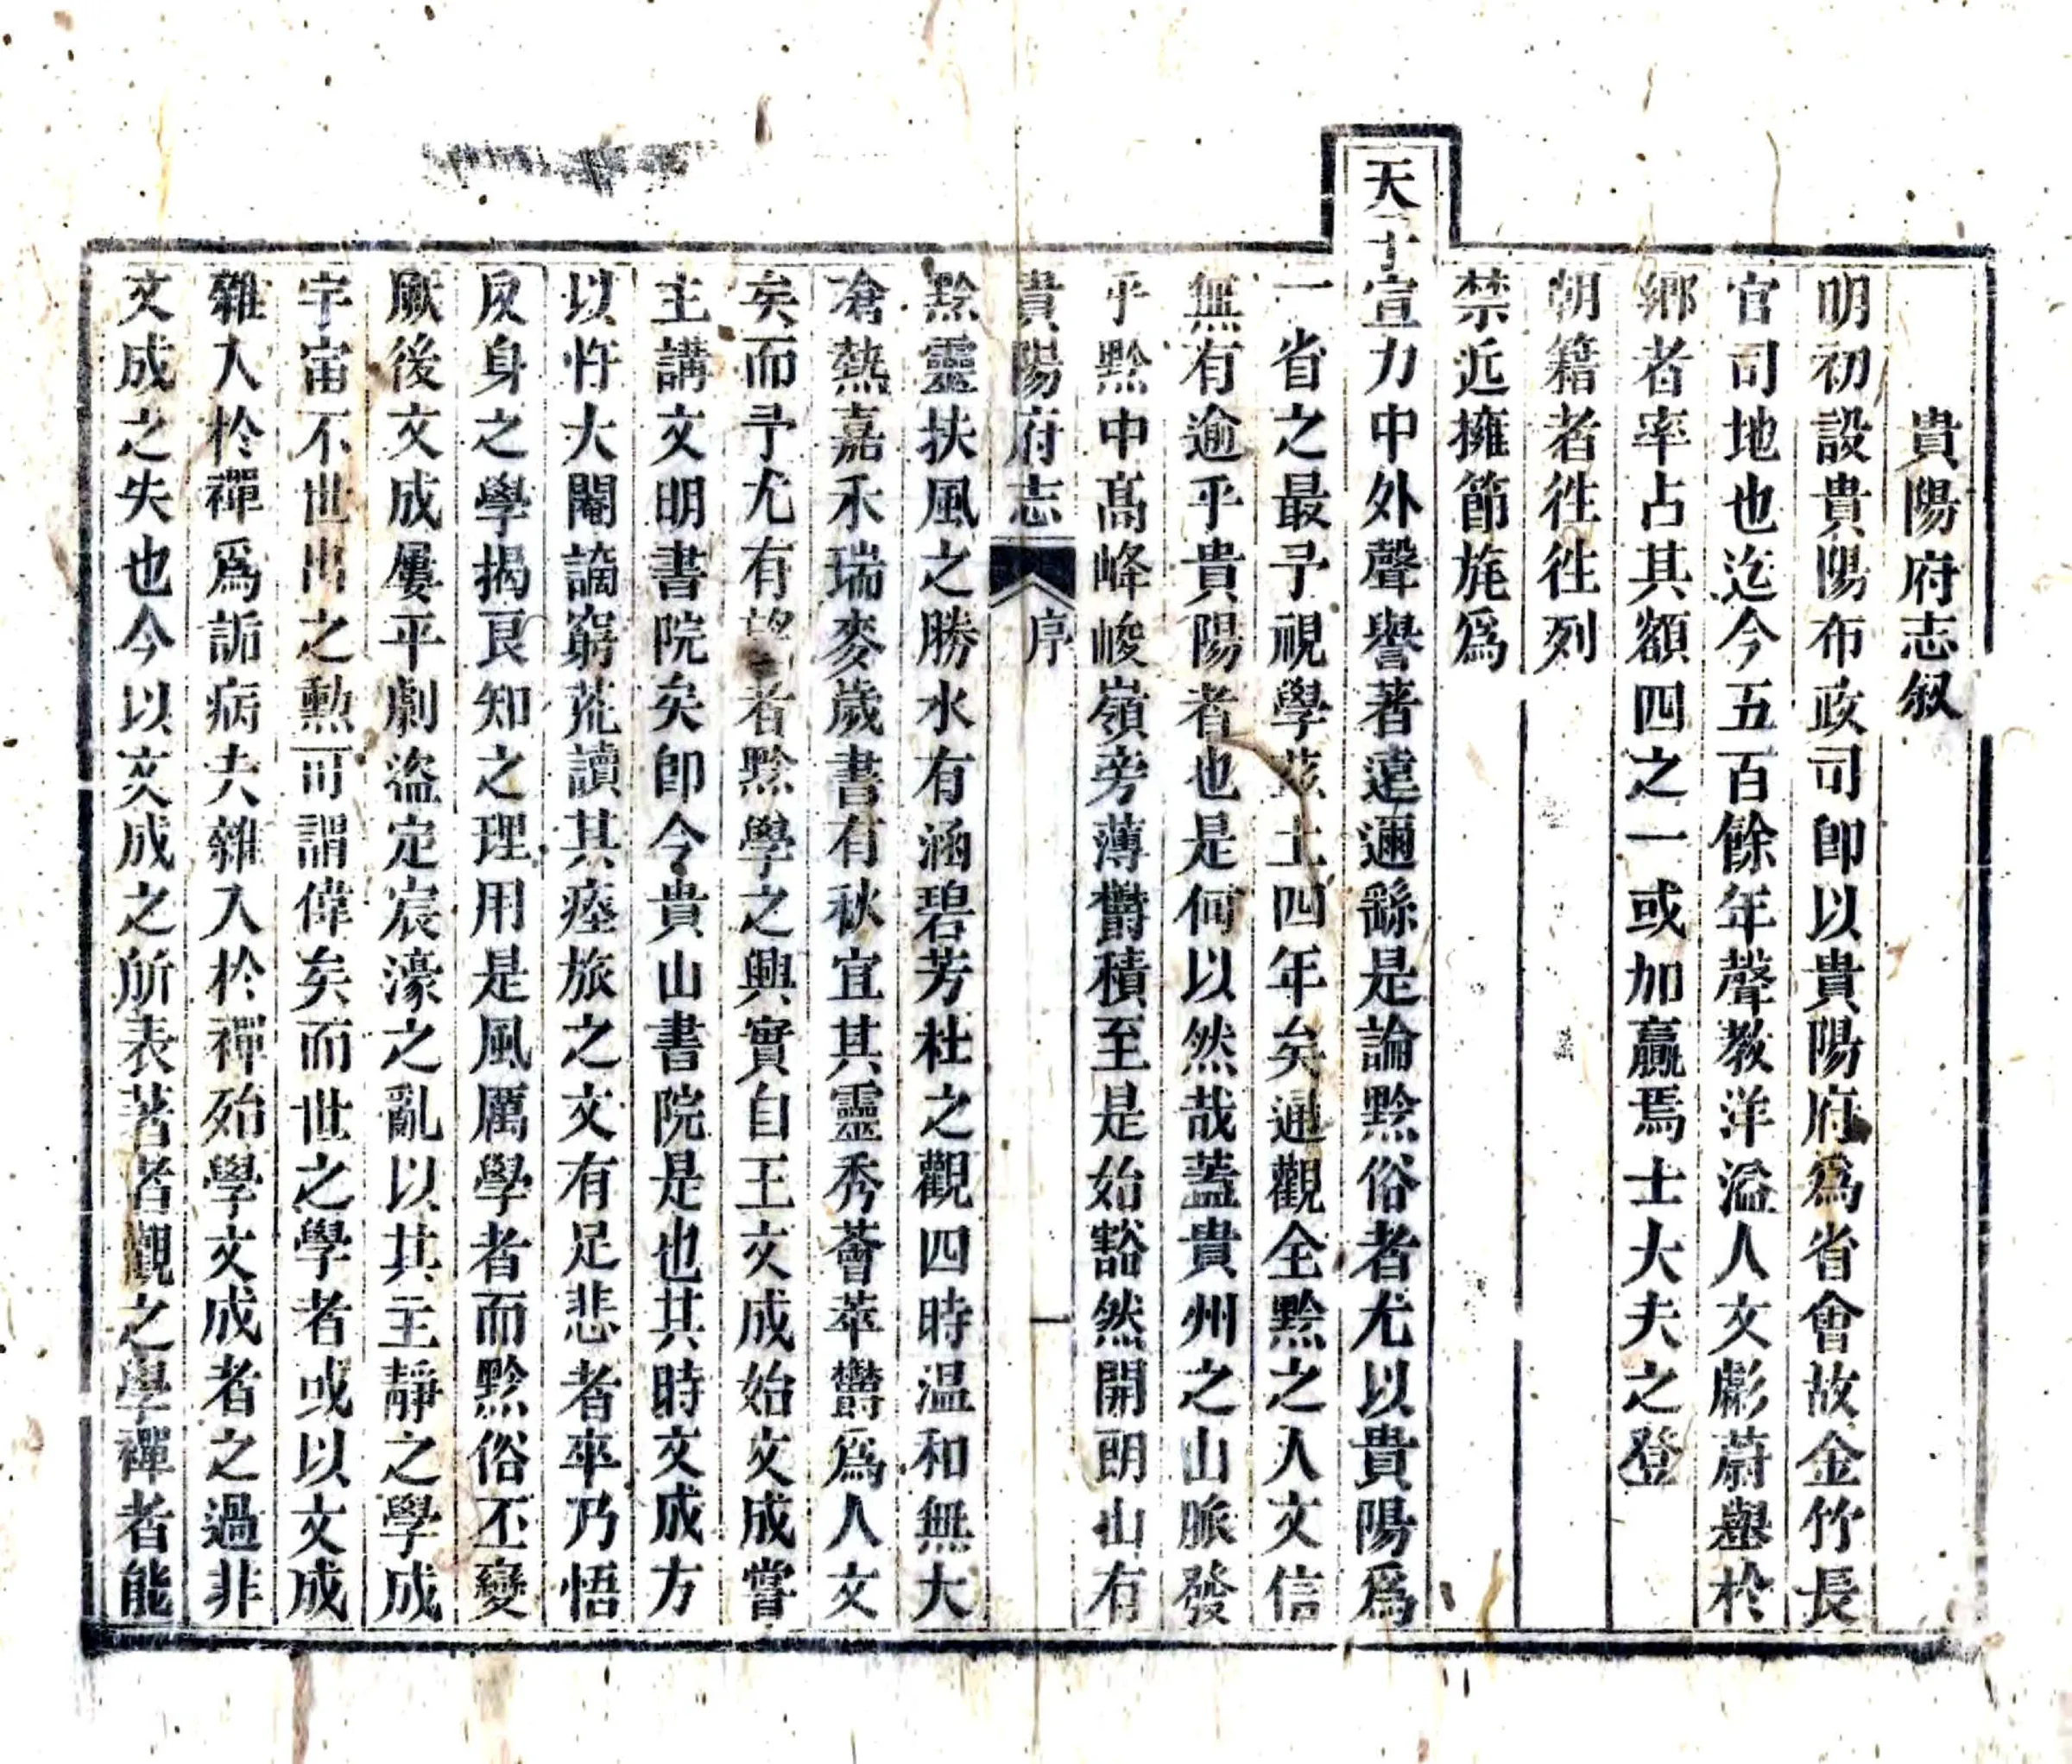 貴陽府志叙
明初設貴陽布政司卽以貴陽府爲省會故金竹長
官司地也迄今五百餘年聲教洋溢人文彪蔚舉於
鄉者率占其額四之一或加贏焉士大夫之登
朝籍者徃徃列
禁近擁節旄爲
天子宣力中外聲譽著遠邇繇是論黔俗者尤以貴陽爲
一省之最予視學茲土四年矣通觀全黔之人文信
無有逾乎貴陽者也是何以然哉蓋貴州之山脈發
乎黔中高峰峻嶺旁薄欝積至是始豁然開朗山有
貴陽府志 序 一
黔靈扶風之勝水有涵碧芳杜之觀四時温和無大
凔熱嘉禾瑞麥歲書有秋宜其靈秀薈萃欝爲人文
矣而予尤有望者黔學之興實自王文成始文成嘗
主講文明書院矣卽今貴山書院是也其時文成方
以忤大閹謫窮荒讀其瘞旅之文有足悲者卒乃悟
反身之學揭良知之理用是風厲學者而黔俗丕變
厥後文成屢平劇盜定宸濠之亂以其主靜之學成
宇宙不世出之勲可謂偉矣而世之學者或以文成
雜入於禪爲詬病夫雜入於禪殆學文成者之過非
文成之失也今以文成之所表著者觀之學禪者能